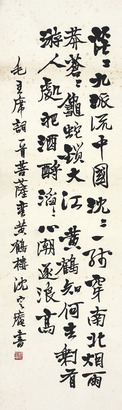 茫々九派流中國沈々一綫穿南北烟雨
莽蒼々龜蛇鎖大江黃鶴知何去剩有
游人處把酒酹滔々心潮逐浪高
毛主席詞一首菩薩蛮黃鶴樓沈定庵書